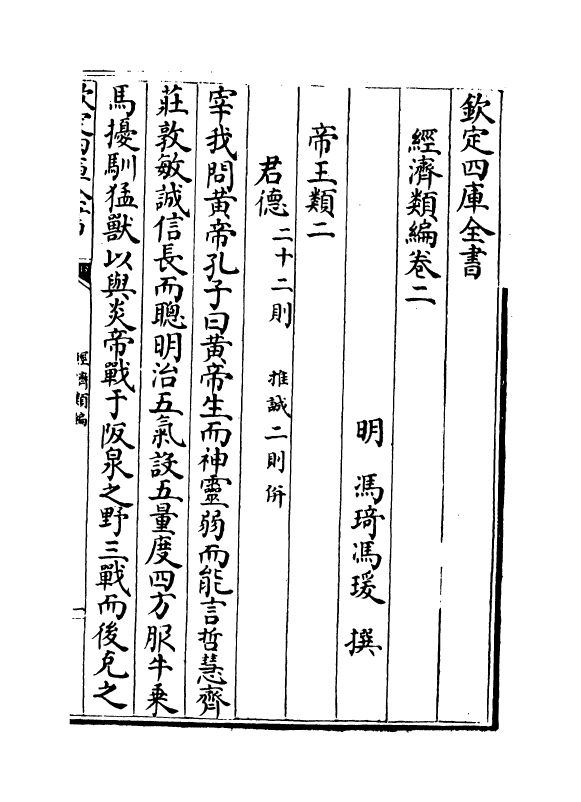 欽定四庫全書
經濟類編卷二
明 馮琦馮瑗 撰
帝王類二
君德二十二則 推誠二則併
宰我問黄帝孔子曰黄帝生而神靈弱而能言哲慧齊
莊敦敏誠信長而聰明治五氣設五量度四方服牛乗
馬擾馴猛獸以與炎帝戰于阪泉之野三戰而後克之
欽定四庫全書
經濟類編
一